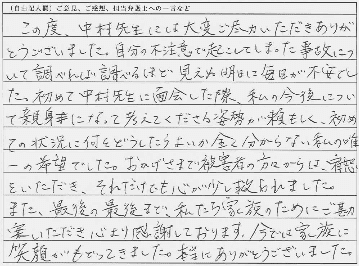 (自由記入欄) ご意見、ご感想、担当弁護士への一言など
この度、中村先生には大変ご尽力いただきありが
とうございました。自分の不注意で起こしてしまった事故につ
いて調べれば調べるほど見えぬ明日に毎日が不安でし
た。初めて中村先生に面会した際、私の今後につい
て親身になって考えてくださる姿勢が頼もしく、初め
ての状況に何をどうしたらよいか全く分からない私の唯
一の希望でした。おかげさまで被害者の方々からは、宥恕
をいただき、それだけでも心が少し救われました。
また、最後の最後まで、私たち家族のためにご勘
案いただき心より感謝しております。今では家族に
笑顔がもどってきました。本当にありがとうございました。